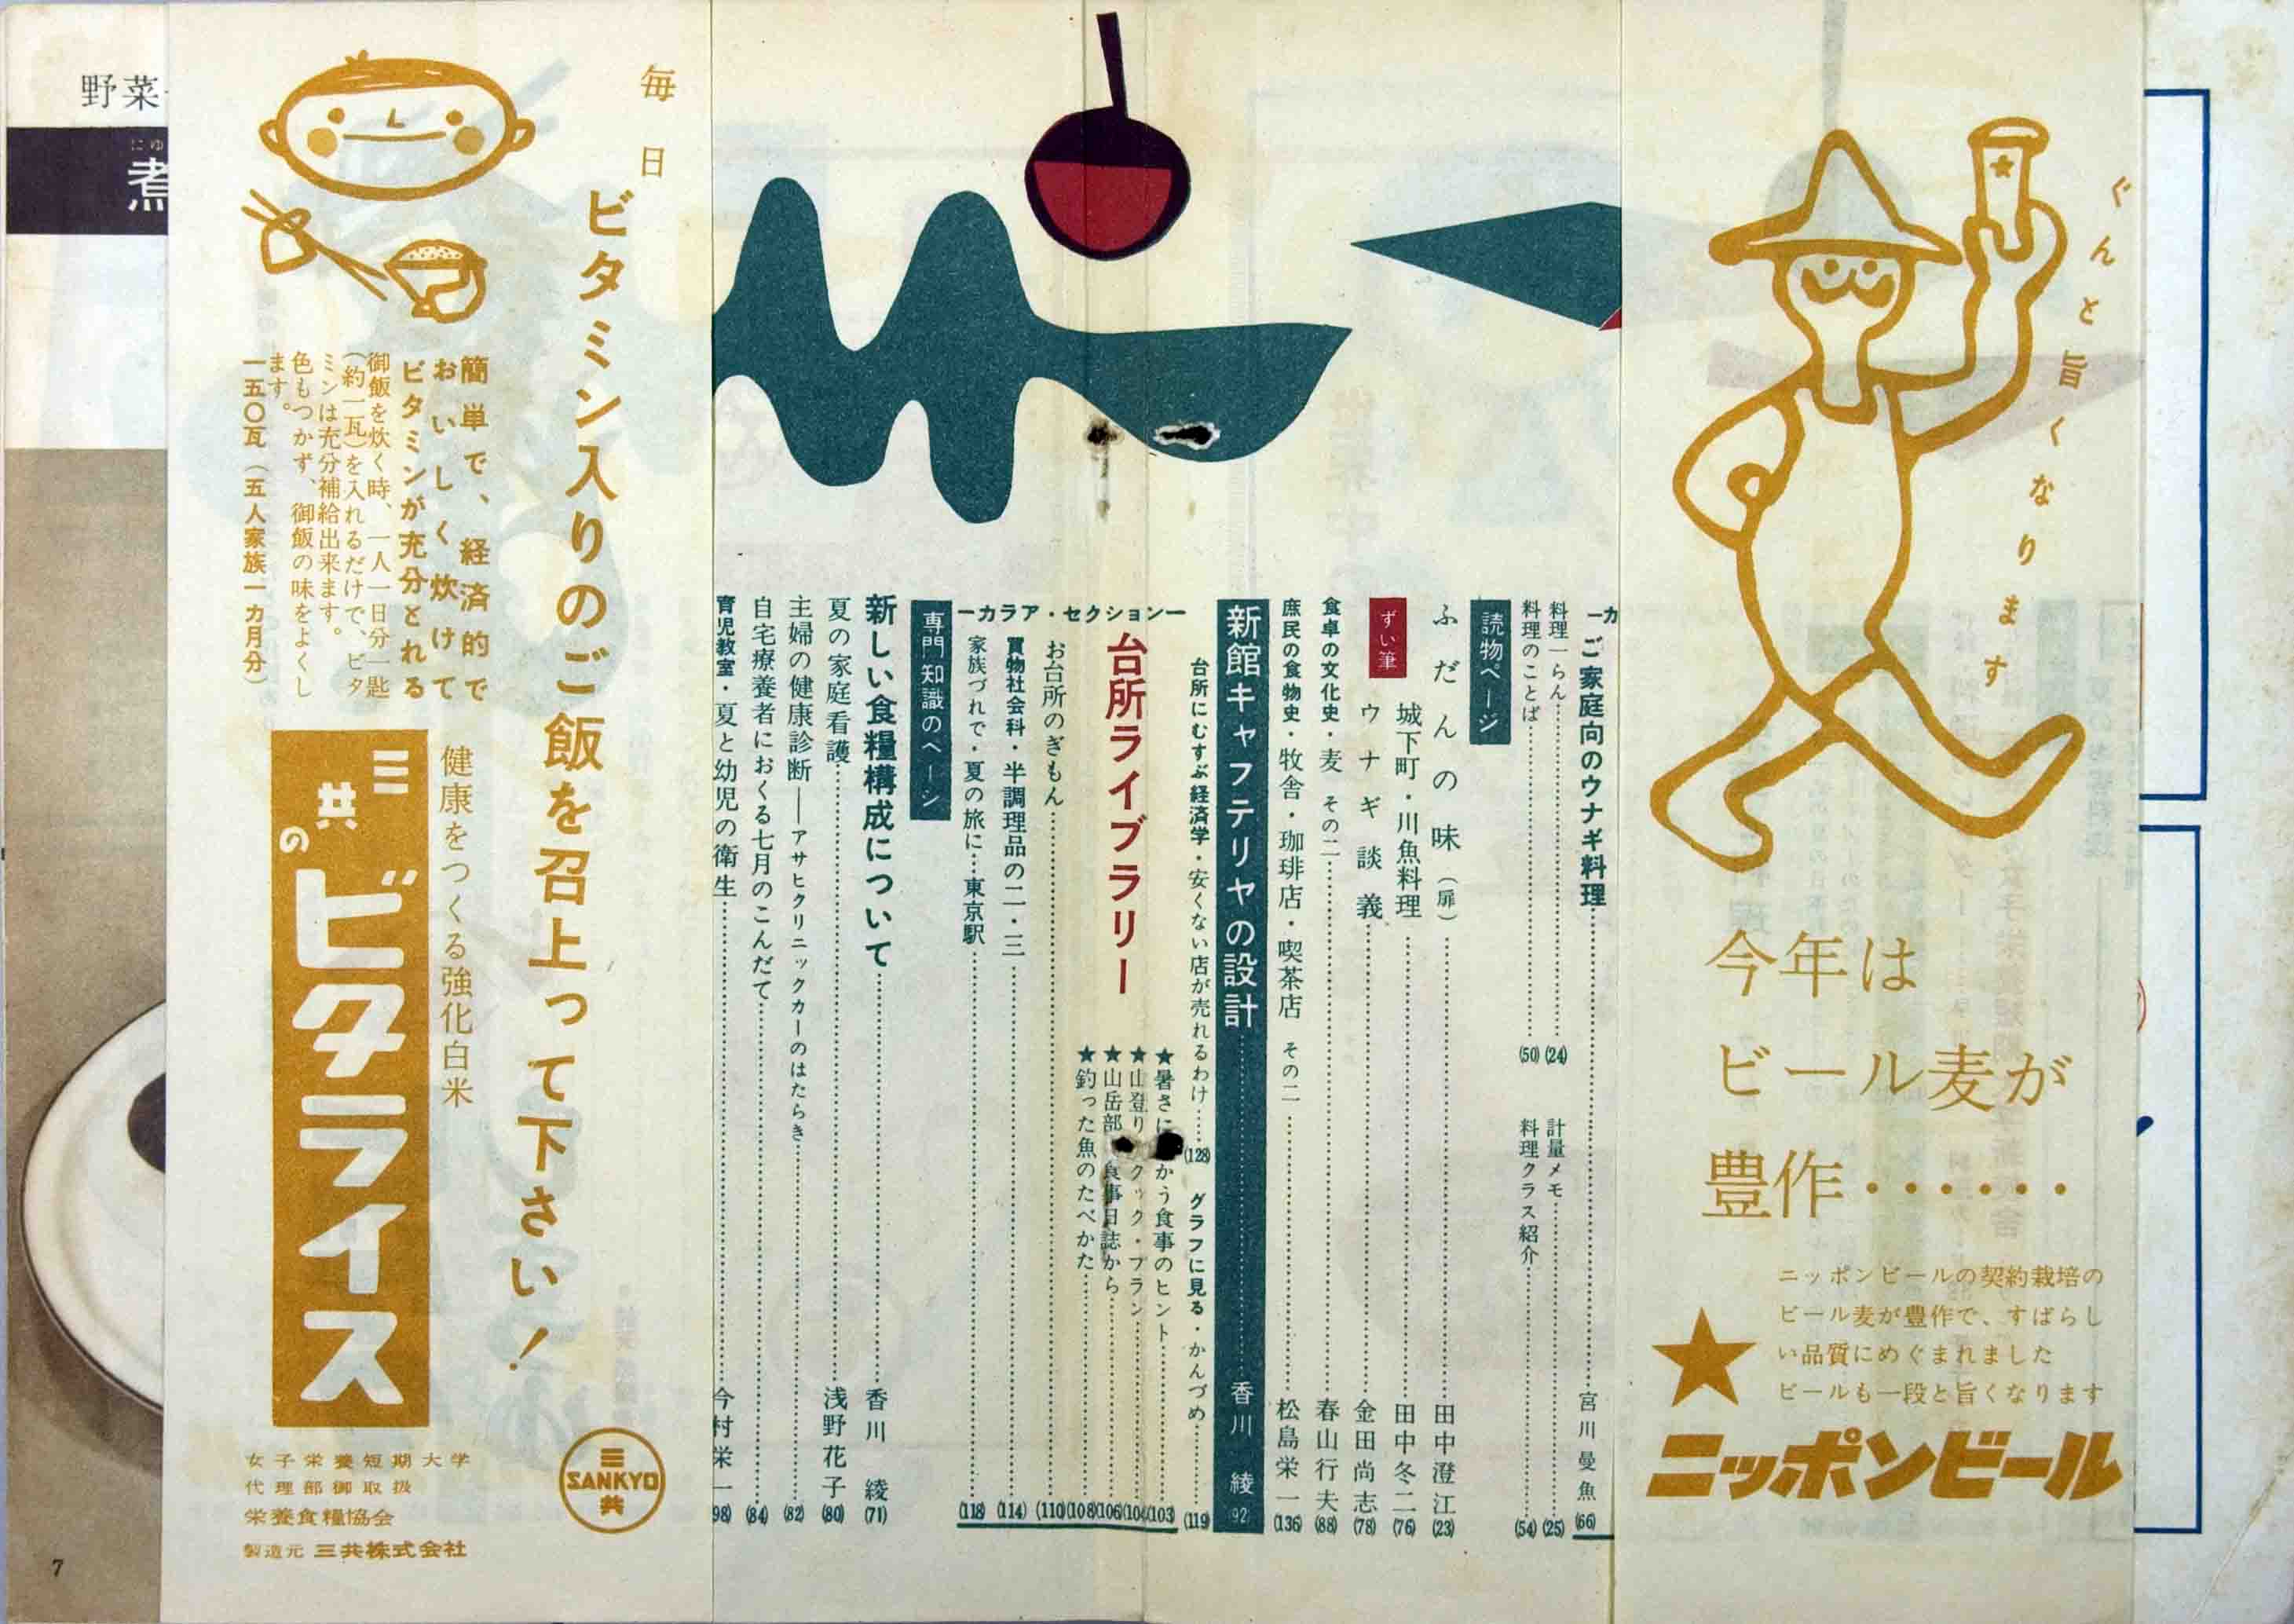 ぐんと旨くなります
今年は
ビール麦が
豊作・・・・・・
ニッポンビールの契約栽培の
ビール麦が豊作で、すばらし
い品質にめぐまれました
ビールも一段と旨くなります
ニッポンビール
ーカ
ご家庭向のウナギ料理 宮川曼魚 (66)
料理一らん (24) 計量メモ (25)
料理のことば (50) 料理クラス紹介 (54)
読物ページ
ふだんの味(扉) 田中澄江 (23)
ずい筆
城下町・川魚料理 田中冬二 (76)
ウナギ談義 金田尚志 (78)
食卓の文化史・麦 その二 春山行夫 (88)
庶民の食物史・牧舎・珈琲店・喫茶店 その二 松島栄一 (136)
新館キャフテリヤの設計 香川綾 (92)
台所にむすぶ経済学・安くない店が売れるわけ (128) グラフに見る・かんづめ (119)
ーカラア・セクションー
台所ライブラリー
★暑さに かう食事のヒント (103)
★山登り クック・プラン (104)
★山岳部 食事日誌から (106)
★釣った魚のたべかた (108)
お台所のぎもん (110)
買物社会科・半調理品の二・三 (114)
家族づれで・夏の旅に…東京駅 (118)
専門知識のページ
新しい食糧構成について 香川綾 (71)
夏の家庭看護 浅野花子 (80)
主婦の健康診断―アサヒクリニックカーのはたらき (82)
自宅療養者におくる七月のこんだて (84)
育児教室・夏と幼児の衛生 今村栄一 (98)
毎日
ビタミン入りのご飯を召上って下さい!
簡単で、経済的で
おいしく炊けて
ビタミンが充分とれる
御飯を炊く時、一人一日分一匙
(約一瓦)を入れるだけで、ビタ
ミンは充分補給出来ます。
色もつかず、御飯の味をよくし
ます。
一五〇瓦(五人家族一カ月分)
健康をつくる強化白米
三共の
ビタライス
三
SANKYO
共
女子栄養短期大学
代理部御取扱
栄養食糧協会
製造元 三共株式会社
野菜
にゆ
煮
7